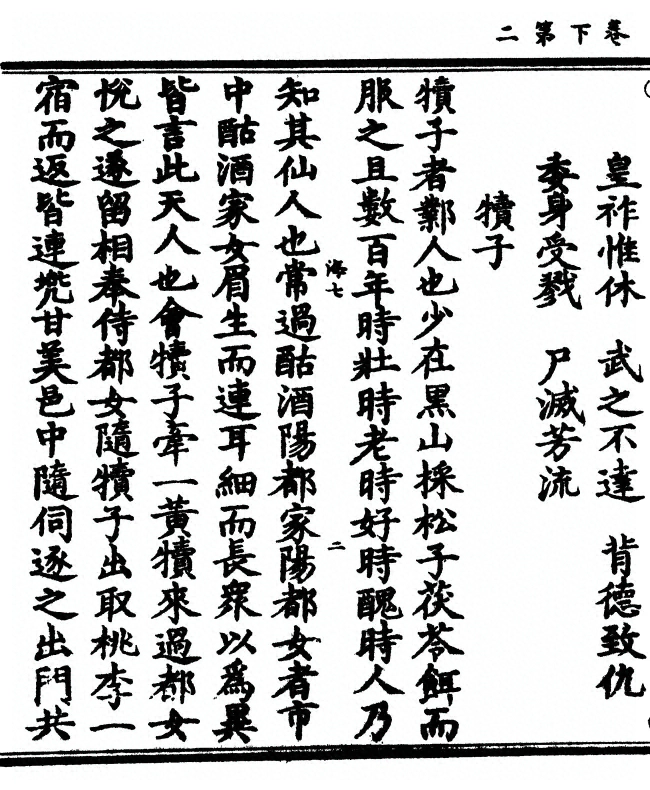 卷下第二
皇祚惟休 武之不達 背德致仇
委身受戮 尸滅芳流
犢子
犢子者鄴人也少在黑山採松子茯苓餌而
服之且數百年時壯時老時好時醜時人乃
海七 二
知其仙人也常過酤酒陽都家陽都女者市
中酤酒家女眉生而連耳細而長衆以為異
皆言此天人也會犢子牽一黃犢來過都女
悅之遂留相奉侍都女隨犢子出取桃李一
宿而返皆連兠甘美邑中隨伺逐之出門共